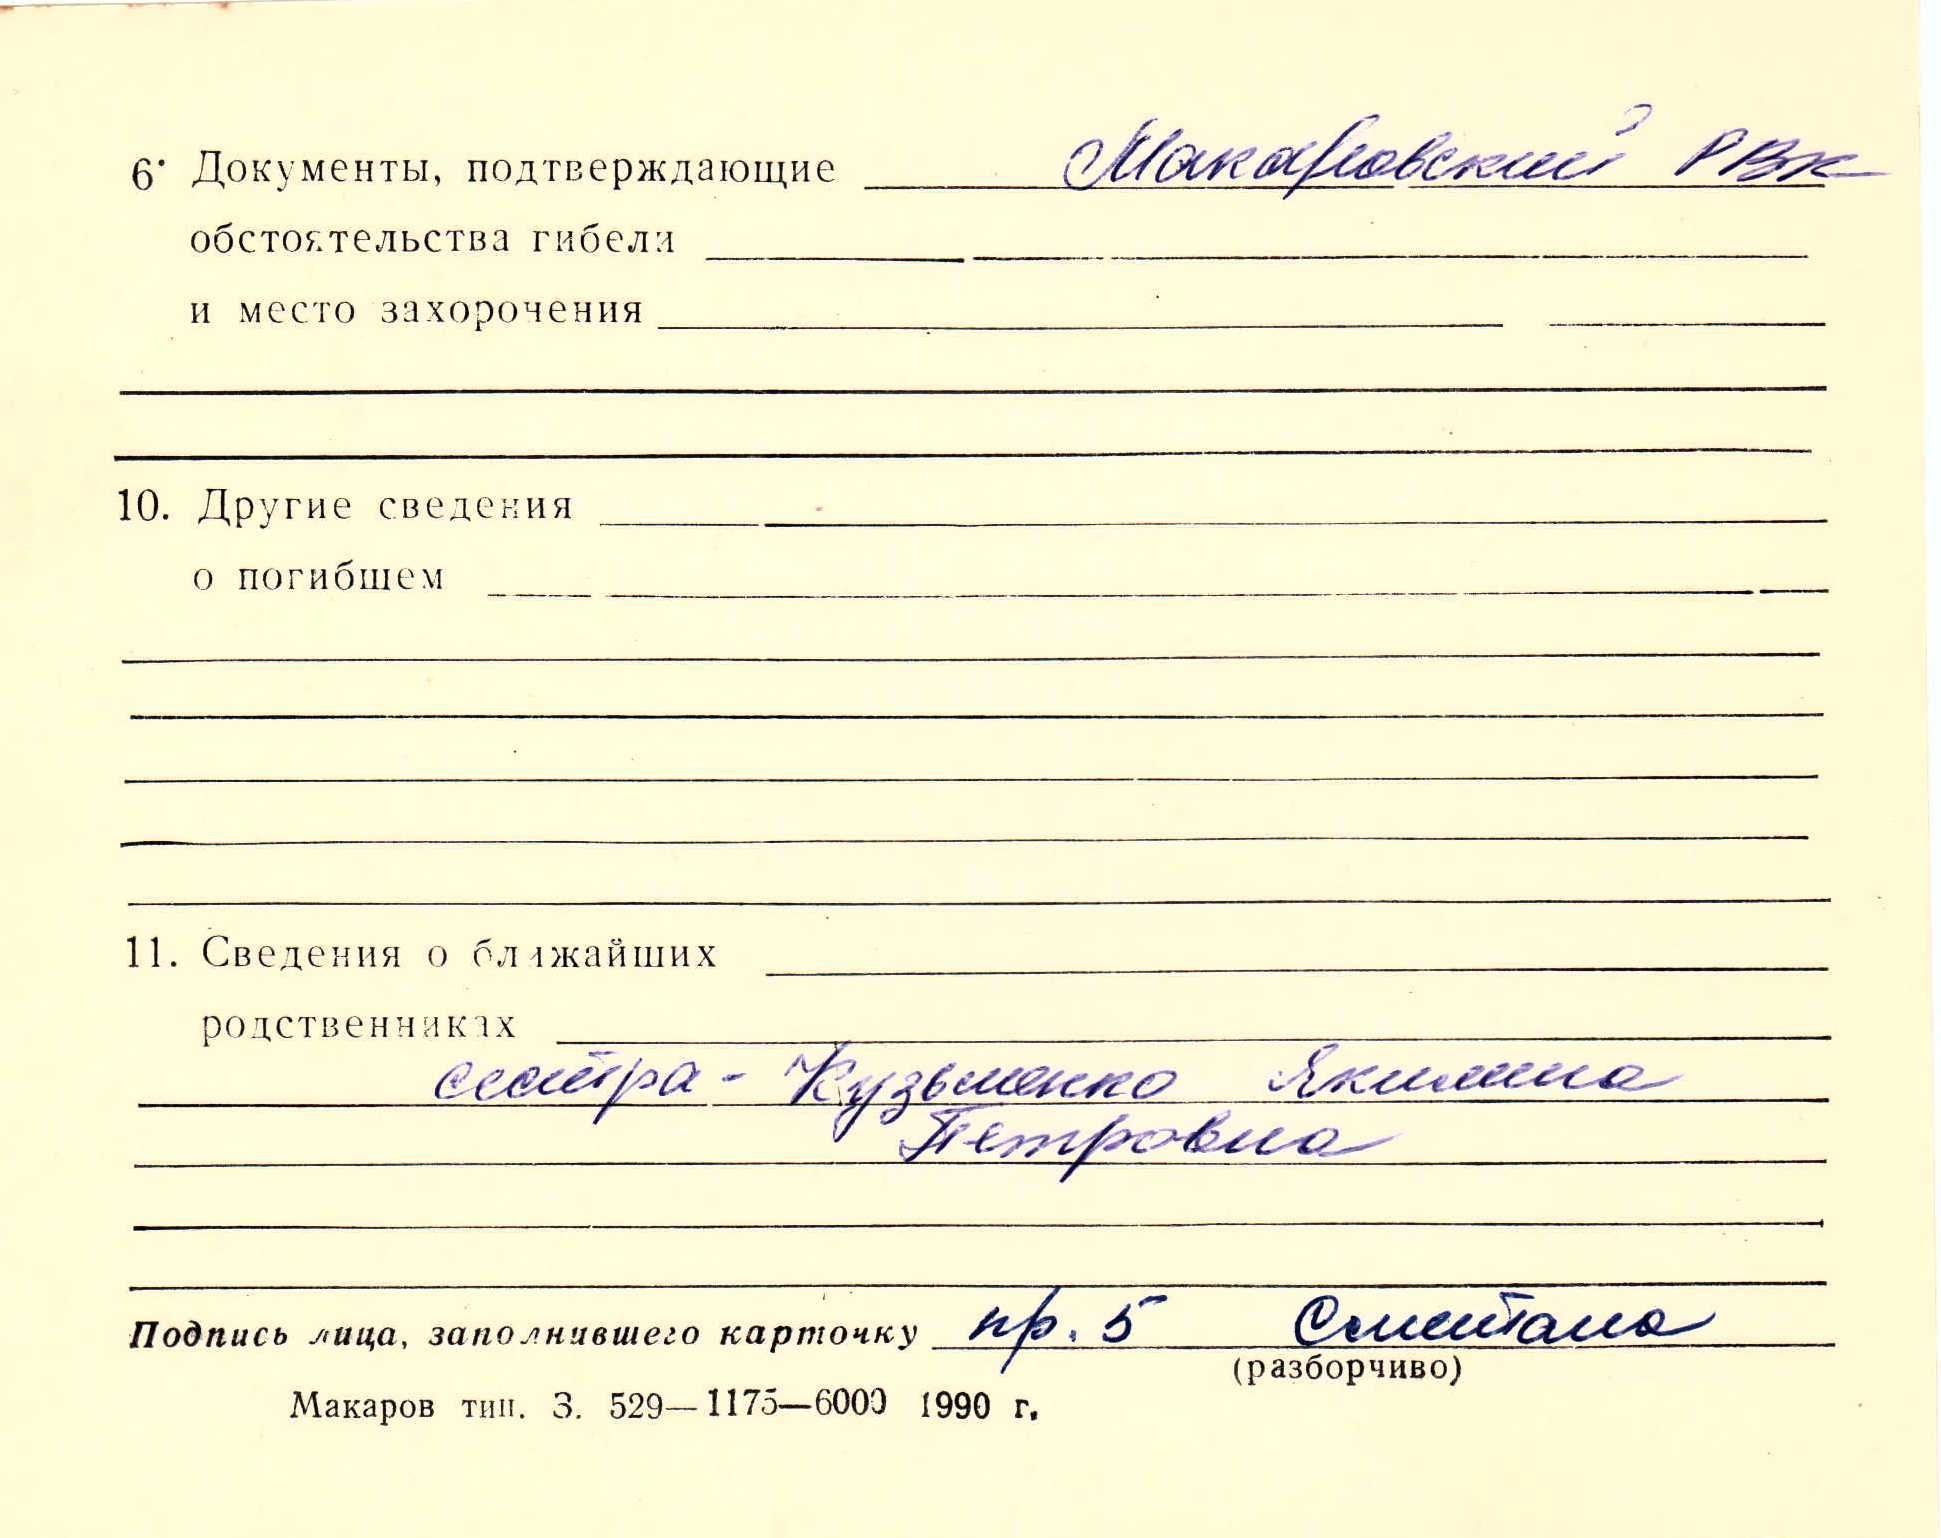 6. Документы, подтверждающие Макаровский РВК
обстоятельства гибели
и место захорочения
10. Другие сведения
о погибшем
11. Сведения о ближайших
родственниках
сестра - Кузьменко Якилина
Петровна
Подпись лица, заполнившего карточку пр. 5 Сметана
(разборчиво)
Макаров тип. З. 529—1175—6000 1990 г.